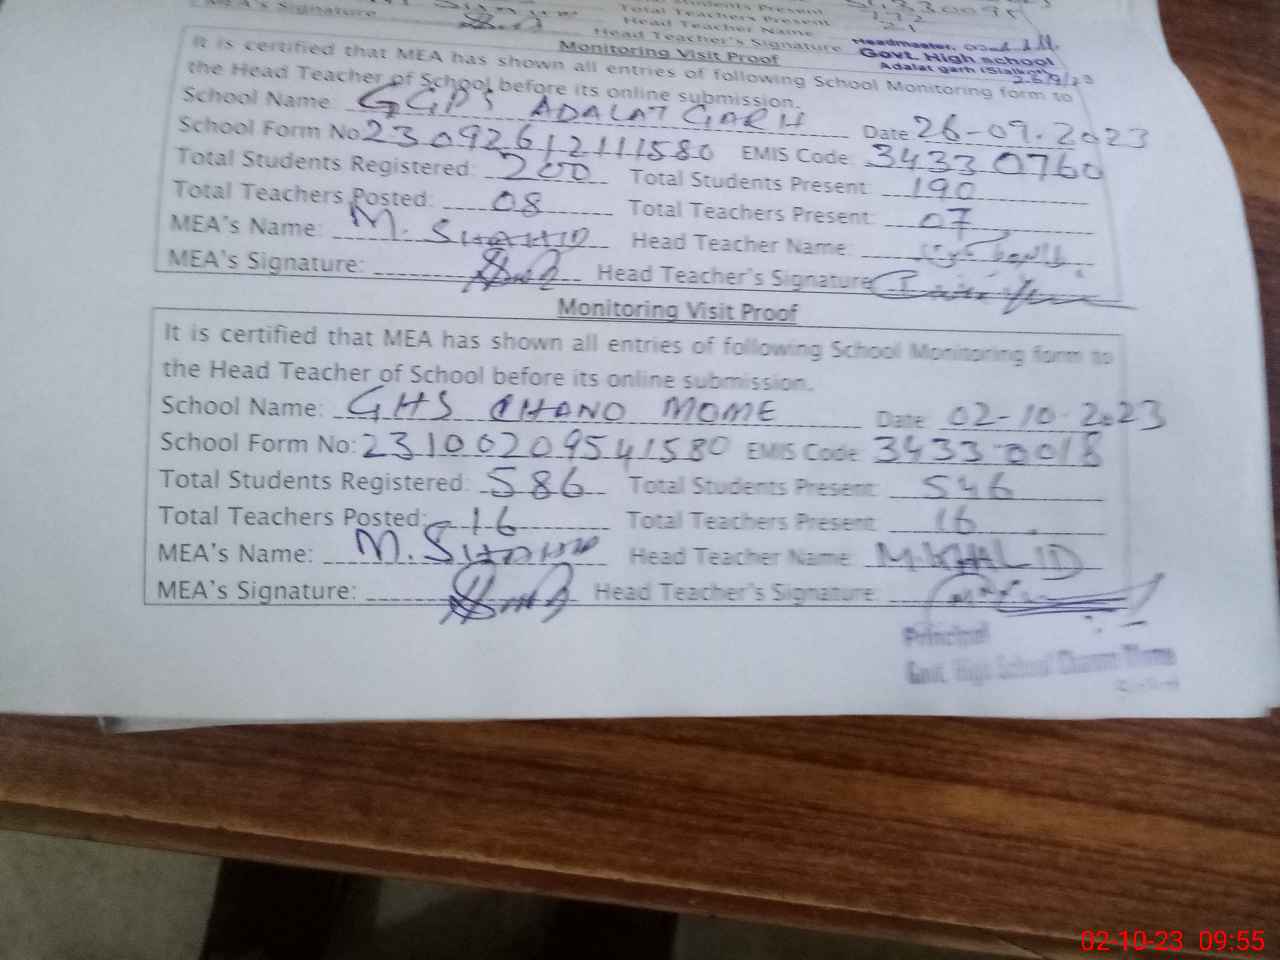 MEA's Signature
Total Students Present
Total Teachers Present
Head Teacher Name
Head Teacher's Signature
Headmaster,
Govt. High school
Adalat garh (Sialkot)
Monitoring Visit Proof
It is certified that MEA has shown all entries of following School Monitoring form to
the Head Teacher of School before its online submission.
School Name: GGPS ADALAT GARH Date 26-09-2023
School Form No: 23092612111580 EMIS Code: 34330760
Total Students Registered: 200 Total Students Present: 190
Total Teachers Posted: 08 Total Teachers Present: 07
MEA's Name: M. SHAHID Head Teacher Name:
MEA's Signature: Head Teacher's Signature
Monitoring Visit Proof
It is certified that MEA has shown all entries of following School Monitoring form to
the Head Teacher of School before its online submission.
School Name: GHS CHANO MOME Date: 02-10-2023
School Form No: 23100209541580 EMIS Code: 34330018
Total Students Registered: 586 Total Students Present: 546
Total Teachers Posted: 16 Total Teachers Present: 16
MEA's Name: M. SHAHID Head Teacher Name: M.KHALID
MEA's Signature: Head Teacher's Signature:
Principal
Govt. High School
02-10-23 09:55